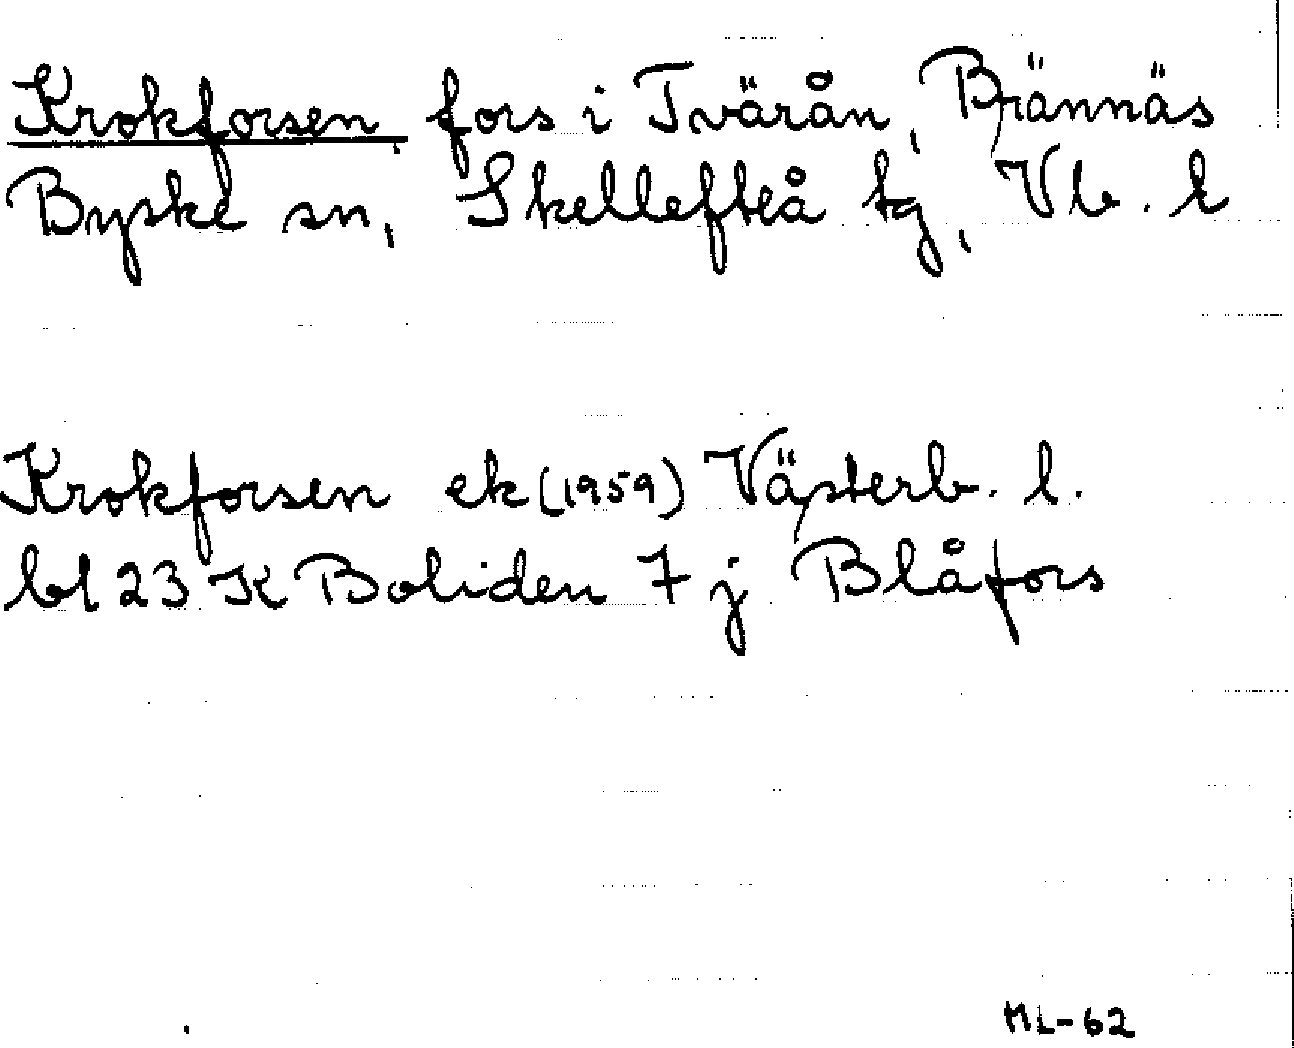 Krokforsen, fors i Tvärån, Brännäs
Byske sn, Skellefteå tg, Vb. l
Krokforsen ek (1959) Västerb. l.
bl 23 K Boliden 7 j Blåfors
ML-62